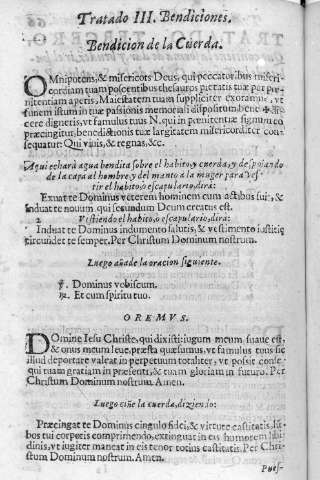 Tratado III. Bendiciones.
Bendicion de la Cuerda.
OMnipotens, & misericors Deus, qui peccatoribus miseri-
cordiam tuam poscentibus thesauros pietatis tuæ per pœ-
nitentiam aperis, Maiestatem tuam suppliciter exoramus, vt
funem istum in tuæ passionis memoriam dispositum bene ✠
cere digneris, vt famulus tuus N. qui in pœnitentiæ signum eo
præcingitur, benedictionis tuæ largitatem misericorditer con-
sequatur: Qui viuis, & regnas, &c.
Aqui echarà agua bendita sobre el habito, y cuerda, y despojando
de la capa al hombre, y del manto a la muger para ves-
tir el habito, o escapulario, dira:
Exuat te Dominus veterem hominem cum actibus suis, &
induat te nouum, qui secundum Deum creatus est.
Vestiendo el habito, o escapulario, dira:
Induat te Dominus indumento salutis, & vestimento iustitiæ
circundet te semper. Per Christum Dominum nostrum.
Luego añade la oracion siguiente.
℣. Dominus vobiscum.
℟. Et cum spiritu tuo.
OREMVS.
DOmine Iesu Christe, qui dixisti: iugum meum suaue est,
& onus meum leue, præsta quæsumus, vt famulus tuus sic
illud deportare valeat in perpetuum totaliter, vt possit conse-
qui tuam gratiam in præsenti, & tuam gloriam in futuro. Per
Christum Dominum nostrum. Amen.
Luego ciñe la cuerda, diziendo:
Præcingat te Dominus cingulo fidei, & virtute castitatis, lum-
bos tui corporis comprimendo, extinguat in eis humorem libi-
dinis, vt iugiter maneat in eis tenor totius castitatis. Per Chri-
stum Dominum nostrum. Amen.
Pues-